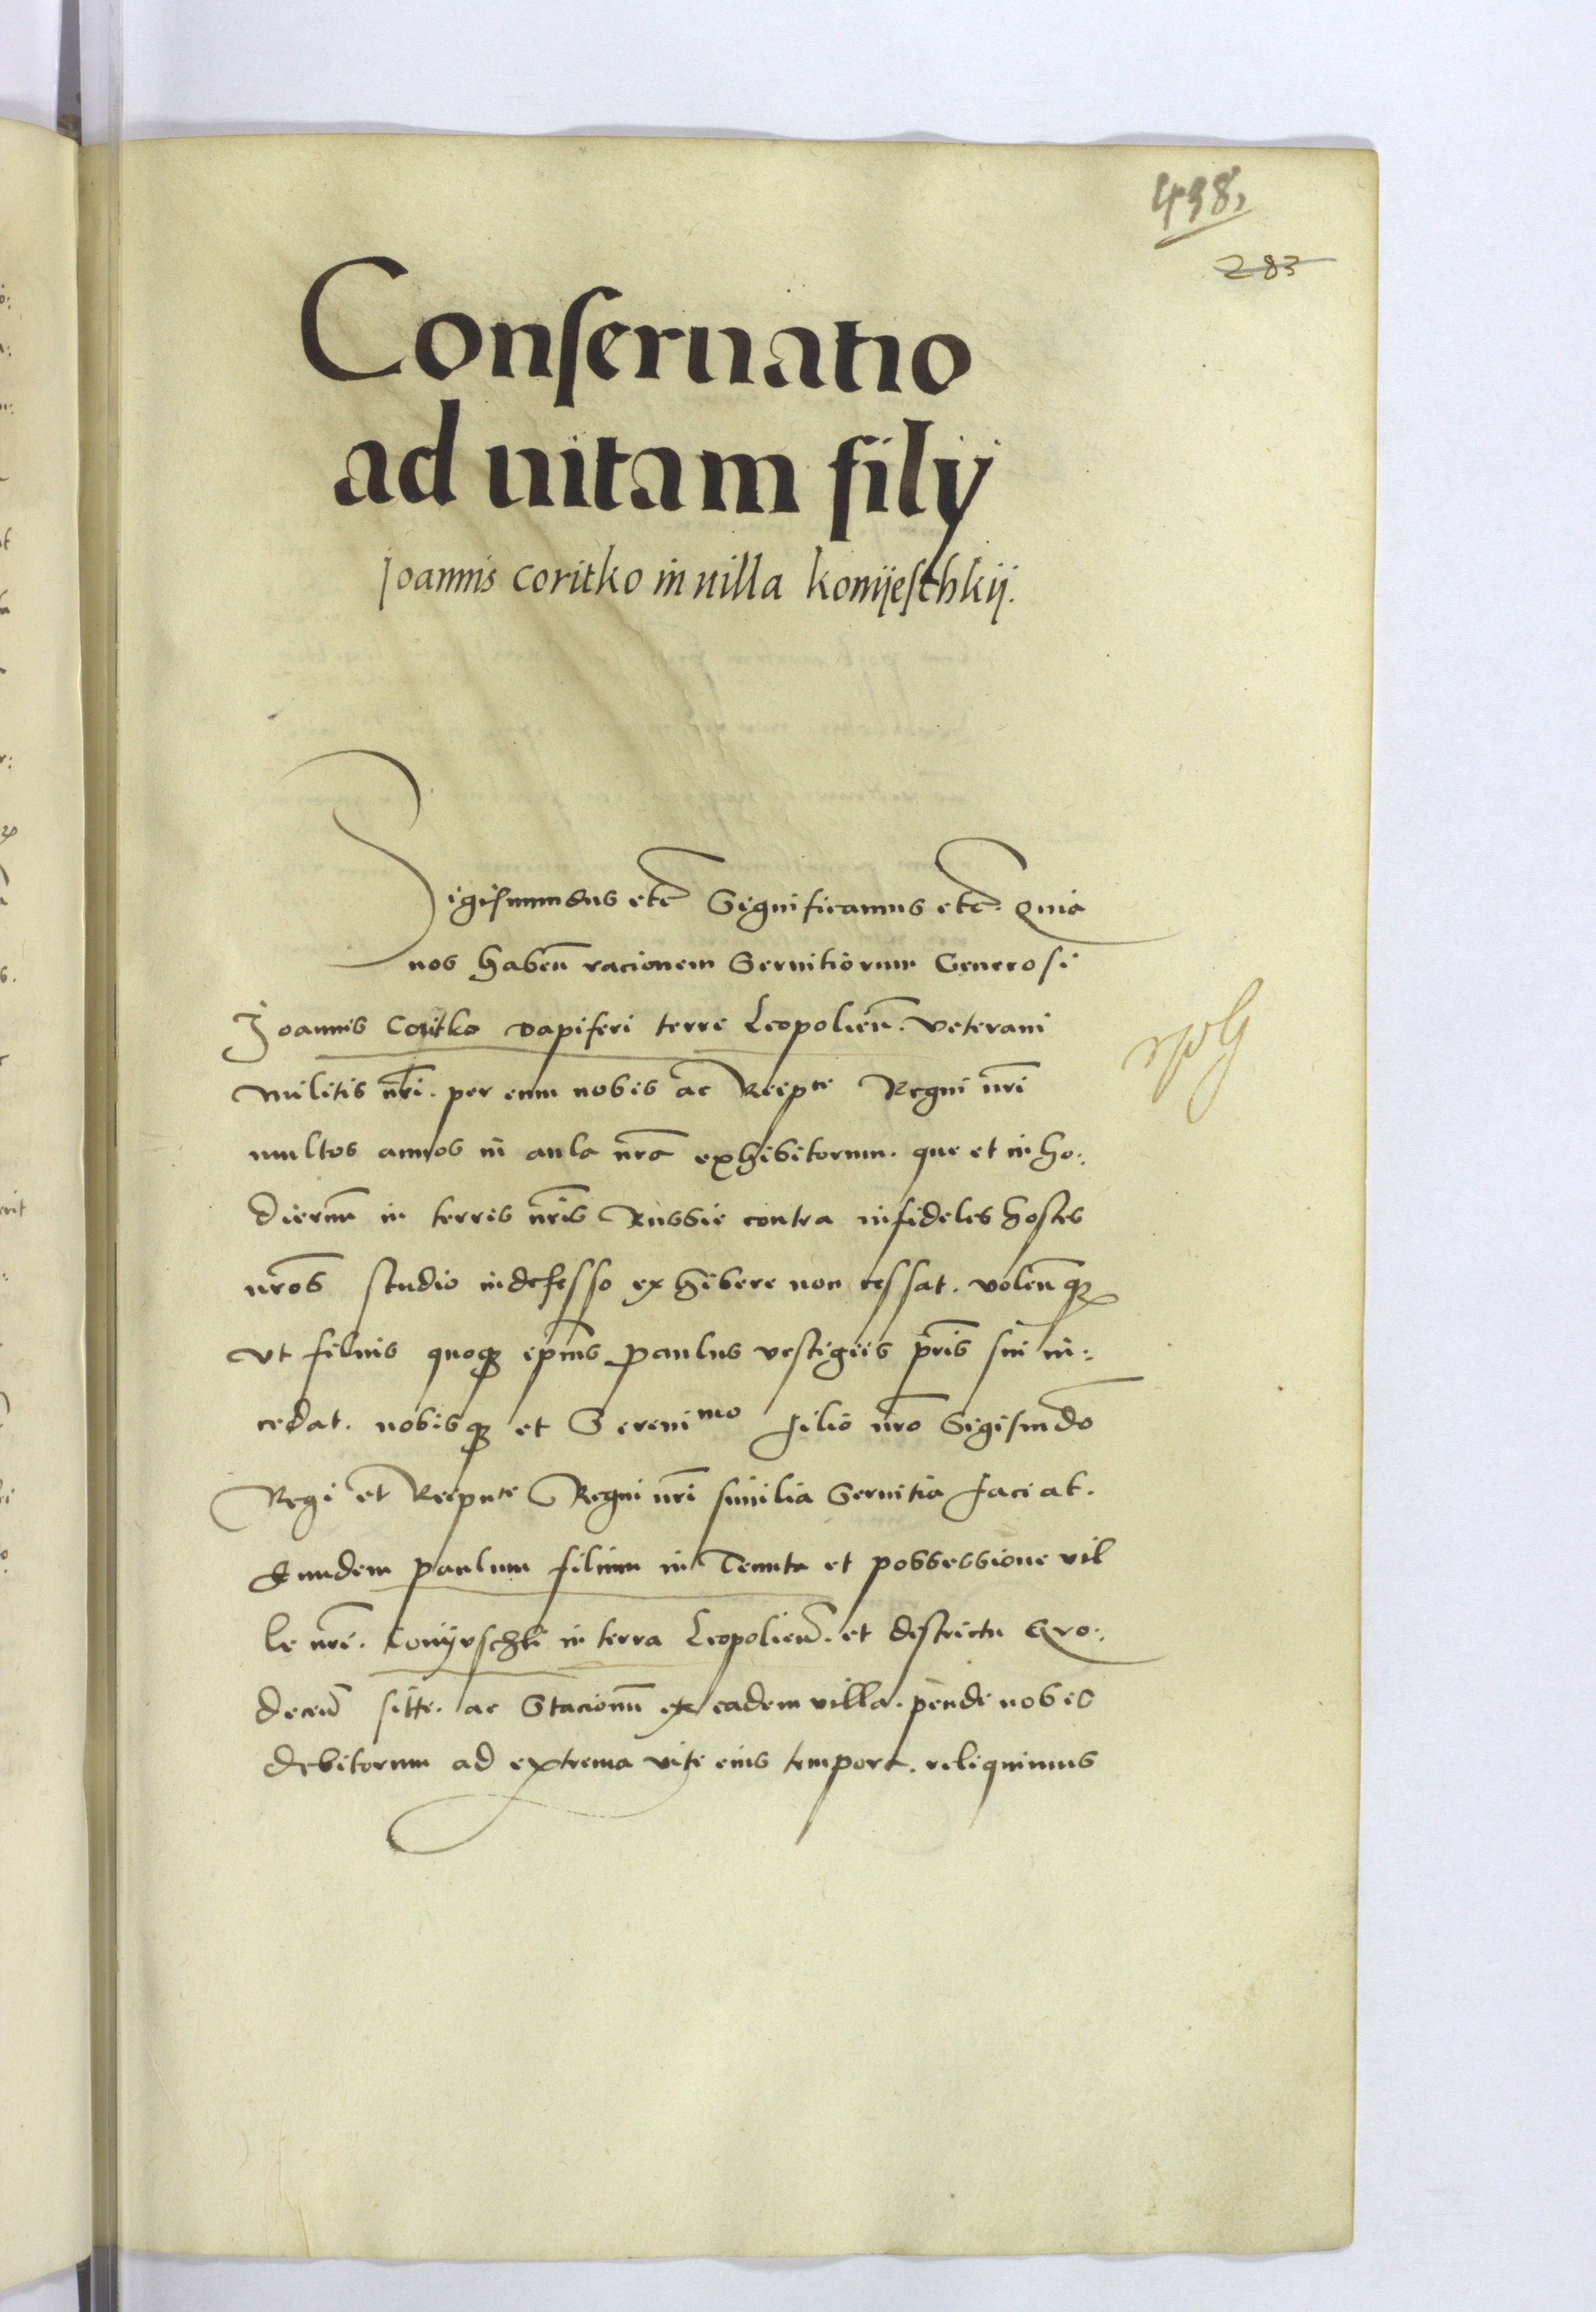 438,
283
Conseruatio
ad uitam filij
Joannis coritko in uilla konijeschkij.
Sigismundus etc Significamus etc. Quia
nos haben̄ racionem Seruitiorum Generosi
Joannis Coritko dapiferi terre Leopolien̄. veterani
militis nr̄i. per eum nobis ac Reipce Regni nr̄i
multos annos in aula nr̄a exhibitorum. que et in ho:
diernu̅ in terris nr̄is Russie contra infideles hostes
nr̄os studio indefesso exhibere non cessat. volen̄qꝫ
vt filius quoqꝫ ipīus paulus vestigiis pr̄is sui in:
cedat. nobisqꝫ et Sereniᵐᵒ filio nr̄o Sigismdo
Regi et Reipuce Regni nr̄i similia Seruitia faciat.
Eundem paulum filium in Tenuta et possessione vil
le nr̄e. Conijeschki in terra Leopolien̄. et districtu Gro:
decen̄ sitte. ac Stacionu̅ ex eadem villa. pende nobis
debitorum ad extrema vite eius tempora. reliquimus